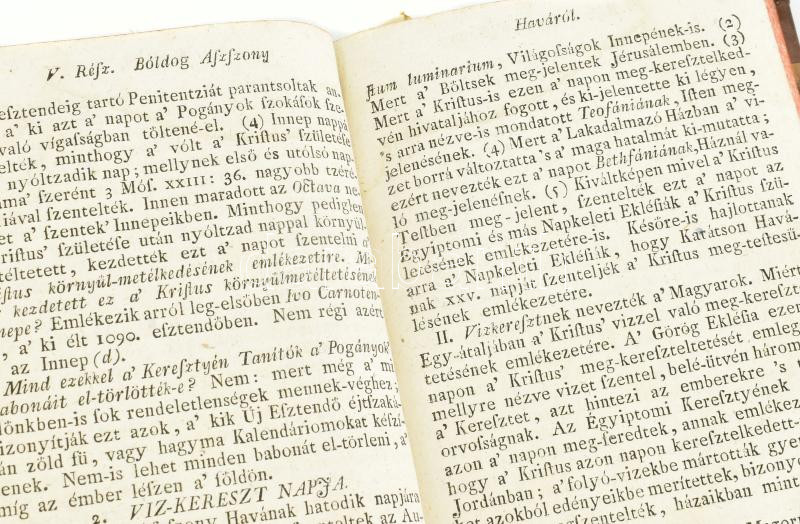 V. Réſz. Bóldog Aſzſzony
eſztendeig tartó Penitentziát parantsoltak an-
a' ki azt a' napot a' Pogányok szokáſok sze-
való vígaſságban töltené-el. (4) Innep nappá
elték, minthogy a' vólt a' Kriſtus' születése
nyóltzadik nap; mellynek első és utólsó nap-
ma' szerént 3 Móſ. XXIII: 36. nagyobb tzéré-
iával szentelték. Innen maradott az Octáva ne-
et a' szentek' Innepeikben. Minthogy pediglen
riſtus' születése után nyóltzad nappal környül-
téltetett, kezdették ezt a' napot szentelni a'
ſtus környül-metélkedésének emlékezetire.
kezdetett ez a' Kriſtus környülmetéltetésének
nepe? Emlékezik arról leg-elsőben Ivo Carnoten-
, a' ki élt 1090. esztendőben. Nem régi azért
az Innep (d).
Mind ezekkel a' Keresztyén Tanítók a' Pogányok'
abonáit el-törlötték-e? Nem: mert még a' mi
dőnkben-is sok rendeletlenségek mennek-véghez;
bizonyítják ezt azok, a' kik Új Esztendő éjtſzaká-
án zöld fű, vagy hagyma Kalendáriomokat kéſzí-
enek. Nem-is lehet minden babonát el-törleni, a'
míg az ember léſzen a' földön.
2. VIZ-KERESZT NAPJA.
szony Havának hatodik napjára
Haváról.
ſtum luminarium, Világoſságok Innepének-is. (2)
Mert a' Bőltsek meg-jelentek Jérusálemben. (3)
Mert a' Kriſtus-is ezen a' napon meg-keresztelked-
vén hivataljához fogott, és ki-jelentette ki légyen,
's arra nézve-is mondatott Teofániának, Iſten meg-
jelenésének. (4) Mert a' Lakadalmazó Házban a' vi-
zet borrá változtatta 's a' maga hatalmát ki-mutatta;
ezért nevezték ezt a' napot Bethfániának, Háznál va-
ló meg-jelenésnek. (5) Kiváltképen mivel a' Kriſtus
Teſtben meg-jelent, szentelték ezt a' napot az
Égyiptomi és más Napkeleti Ekléſiák a' Kriſtus szü-
letésének emlékezetére-is. Későre-is hajlottanak
arra a' Napkeleti Ekléſiák, hogy Karátson Havá-
nak XXV. napját szenteljék a' Kriſtus meg-testesü-
lésének emlékezetére.
II. Vizkeresztnek nevezték a' Magyarok. Miért
Egy-átaljában a' Kriſtus' vizzel való meg-kereszt
tetésének emlékezetére. A' Görög Ekléſia ezen
napon a' Kriſtus' meg-kereszteltetését emleg
mellyre nézve vizet szentel, belé-ütvén három
a' Keresztet, azt hintezi az emberekre 's
orvoſságnak. Az Égyiptomi Keresztyének
azon a' napon meg-feredtek, annak emlékez
hogy a' Kriſtus azon napon keresztelkedett-
Jordánban; a' folyó-vizekbe mártották gyer
ket azokból edényeikbe merítettek, bizony
szentelték, házaikban mint